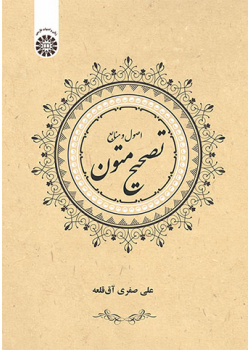 اصول و منابع
تصحیح متون
علی صفری آق‌قلعه